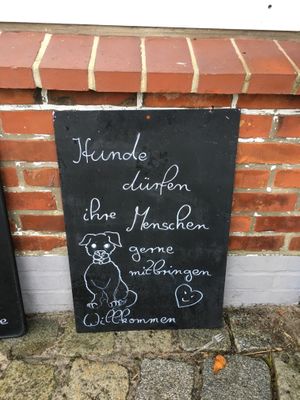 Hunde
dürfen
ihre Menschen
gerne
mitbringen
Willkommen